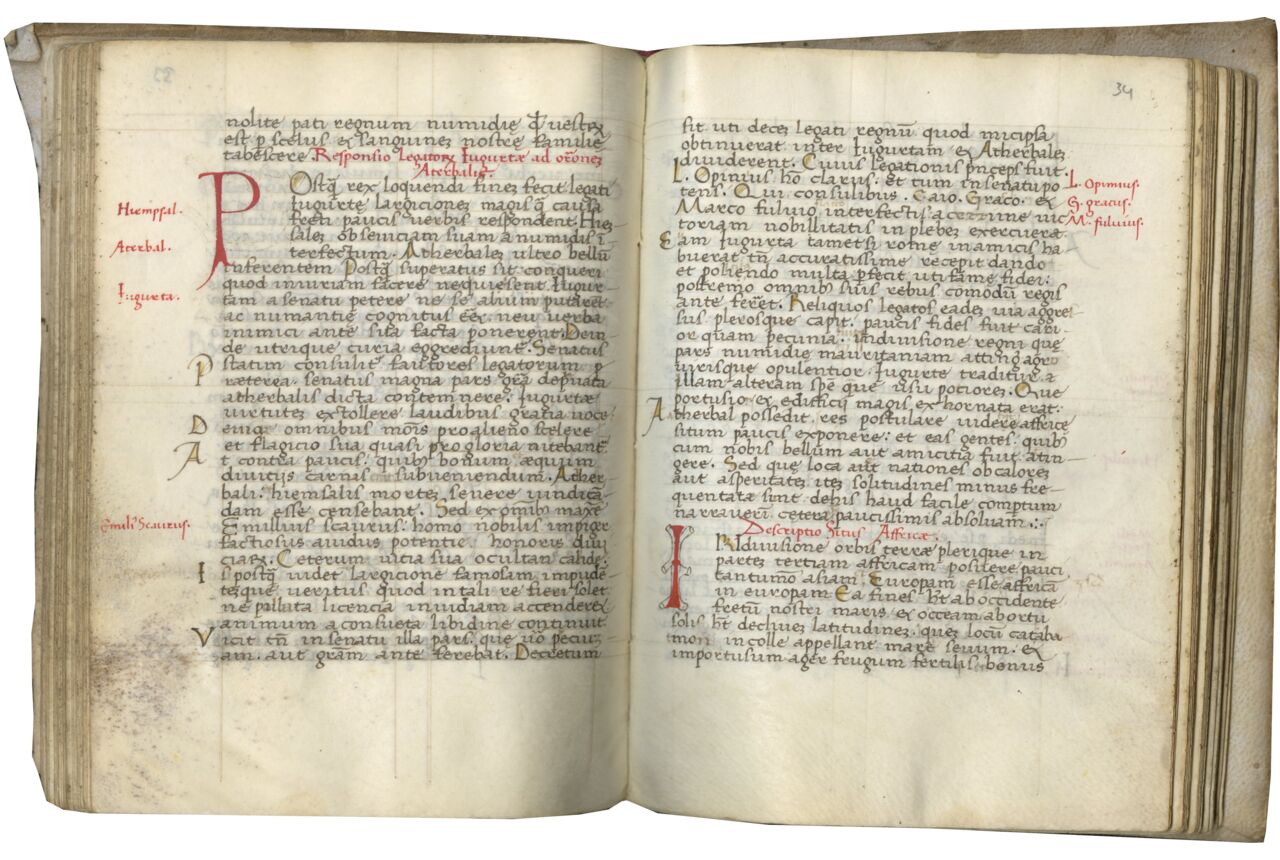 nolite pati regnum numidię Q̄ vestrꝝ
est p̱ scelus ex sanguinez nostre familie
tabescere. Responsio Legatorꝝ Iugurtæ ad orōnez
Aterbalis.
POstq̄ rex loquendi finez fecit legati
Iugurte largicionez magis q̄ causa
freti paucis verbis respondent. Hiē
salez obseviciam suam a numidis ī
terfectum. Atherbalez ultro bellū
Inferentem Postq̄ superatus sit. conqueri
quod iniuriam facere nequiesent. Iugur
tam a senatu petere ne se alium putaret
ac numantię cognitus eēt. neu verba
inimici ante sita facta ponerent. Dein
de utrique curia eggrediunt̄. Senatus
Statim consulit fautores legatorum p
Preterea senatus magna pars gr̄a depravata
atherbalis dicta contemnere. Iugurtæ
virtutez extollere laudibus gratia voce
Deniqꝫ omnibus mōis pro alieno scelere
et flagicio sua quasi pro gloria nitebant̄
At contra pauci quibꝫ bonum æquum
diviciis carius subveniendum. Ather
bali. hiemsalis mortez severe vindicā
dam esse censebant. Sed ex oīmbꝫ maxē
Emillius scaurus. homo nobilis impigr
factiosus avidus potentie honoris divi
ciarꝝ. Ceterum vitia sua ocultan calide
Is postq̄ videt largicionē famosam impudē
tesque veritus quod in tali re fieri solet
ne palluta licencia invidiam accenderet
animum a consueta libidine continuit
Vicit tn̄ in senatu illa pars que vō pecuī
am. aut grām ante ferebat. Decretum
Hiempsal.
Aterbal.
Iugurta.
Emilꝰ Scaurus.
34
sit uti decez legati regnū quod micipsa
obtinuerat inter Iugurtam ex Atherbalez
dividerent. Cuius legationis p̄nceps fuit.
L. Opinius hō clarius. et tum in senatu po
tens. Qui consulibus. Gaio. Graco. ex
Marco fulvio interfectis acerrime vic
toriam nobillitatis in plebez exercuerat
Eam Iugurta tametsi rome in amicis ha
buerat tn̄ accuratissime recepit dando
et poliendo multa p̱fecit uti fāme fidei:
postremo omnibꝫ suis rebus comodū regis
ante feret. Reliquos legatos eadez via aggre
sus plerosque capit. paucis fides fuit cari
or quam pecunia. Indivisione regni quę
pars numidie mauritaniam atting agro
virisque opulentior. Iugurte traditur a
illam alteram spē que usu potiorez. Que
portusio ex edifficij magis ex hornata erat.
Atherbal possedit. res postulare videre affrice
situm paucis exponere: et eas gentes. quibꝫ
cum nobis bellum aut amicitia fuit atin
gere. Sed que loca aut nationes ob calorez
aut asperitatez. itez solitudines minus fre
quentata sunt de his haud facile comptum
narraverī. cetera paucissimis absoluam .:.
Descriptio Situs Affricæ.
INdivisione orbis terræ plerique in
partez tertiam affricam posuere pauci
tantumō asiam. Europam esse affricā
in europam Ea fines hēt ab occidente
fretū nostri maris. ex occeam abortu
solis hēt declivez latitudinez. quez locū cataba
mon in colle appellant mare sevum. ex
importusium ager frugum fertilis. bonus
L. Opinius.
G. gracus.
M. fulvius.